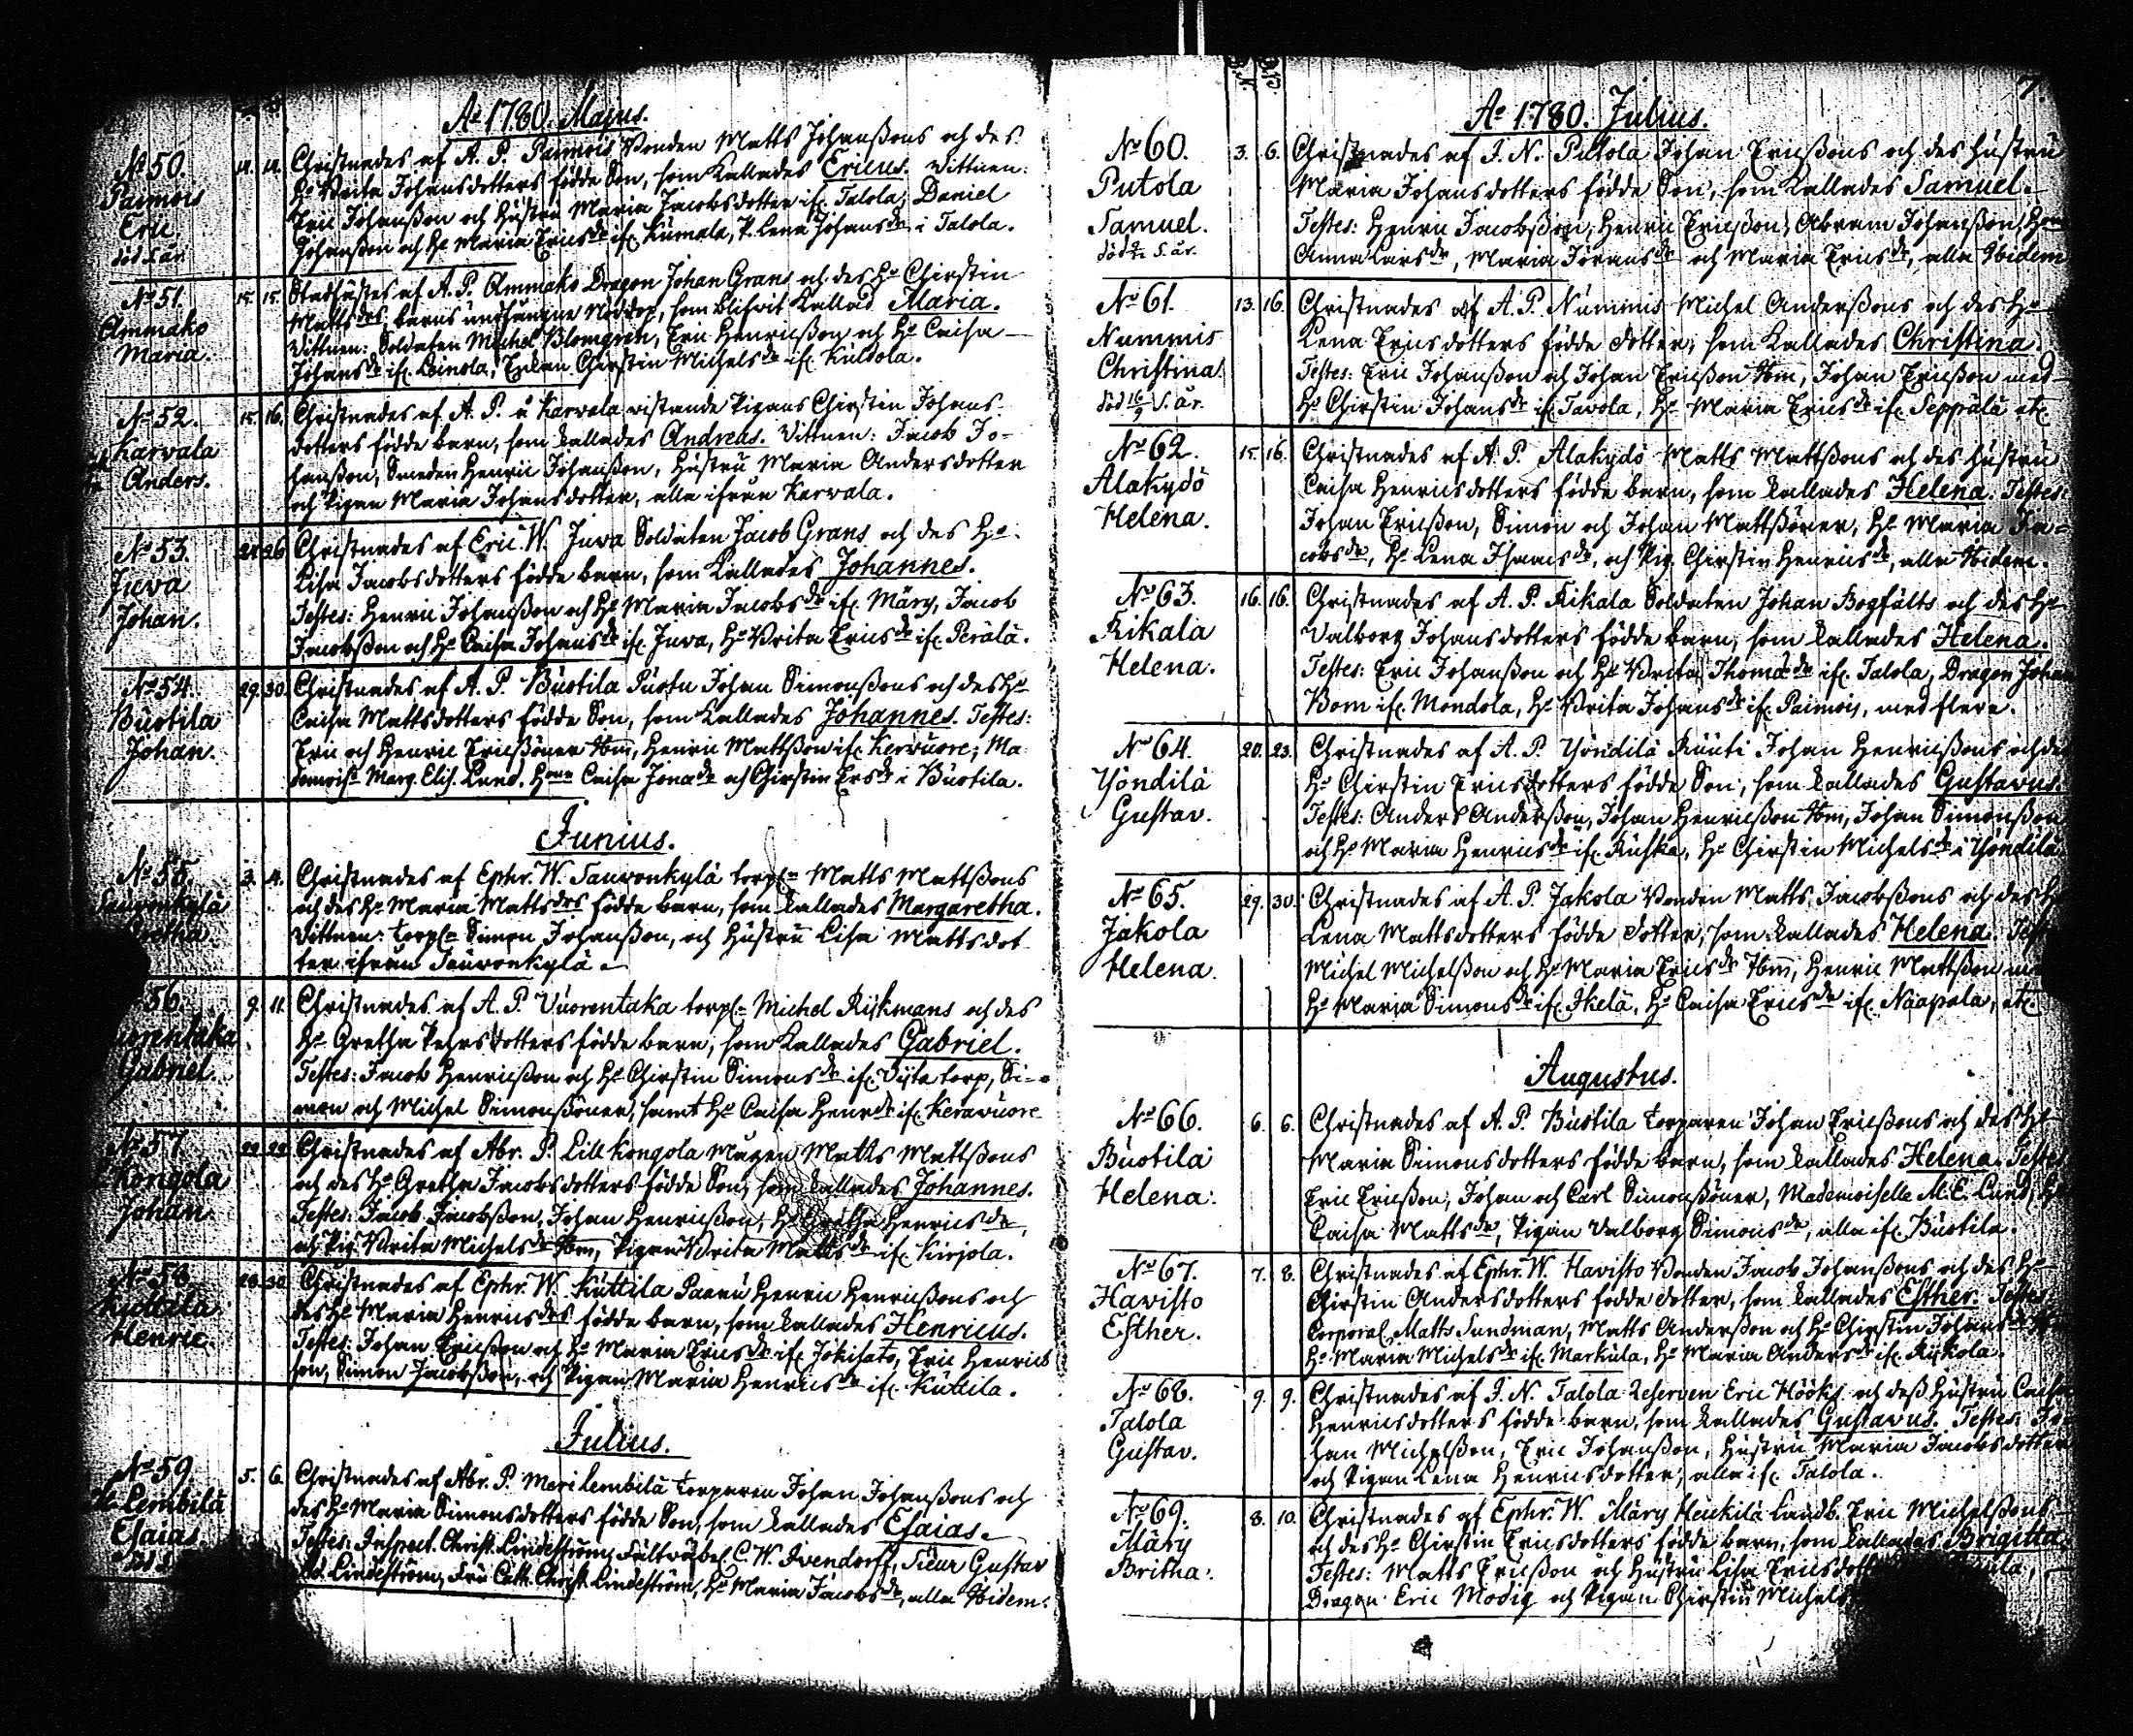 Ao 1780. Majus.
No 50.
Paimois
Eric
död s. år.
14. 14. Christnades af A. P. Paimois Bonden Matts Johanßons och des
Ho Brita Johansdotters födde Son, som kallades Ericus. Vittnen:
Eric Johanßon och Hustru Maria Jacobsdotter ifr. Talola, Daniel
Johanßon och Ho Maria Ericsdr ifr. Kumala, P. Lena Johansdr i Talola.
No 51.
Ammako
Maria.
15. 15. Stadfästes af A. P. Ammako Dragon Johan Grans och des Ho Chirstin
Matts dos barns undfångne Nöddop, som blifvit kallad Maria.
Vittnen: Soldaten Michel Blomgren, Eric Henricßon och Ho Caisa
Johansdr ifr. Leinola, Enkan Chirstin Michelsdr ifr. Kuldola.
No 52.
Karvala
Anders.
15. 16. Christnades af A. P. å Karvala vistande Pigans Chirstin Johans-
dotters födde barn, som kallades Andreas. Vittnen: Jacob Jo-
hanßon, Smeden Henric Johanßon, Hustru Maria Andersdotter
och Pigan Maria Johansdotter, alla ifrån Karvala.
No 53.
Juva
Johan.
26. Christnades af Eric W. Juva Soldaten Jacob Grans och des Ho
Lisa Jacobsdotters födde barn, som kallades Johannes.
Testes: Henric Johanßon och Ho Maria Jacobsdr ifr. Märy, Jacob
Jacobßon och Ho Caisa Johansdr ifr. Juva, Ho Brita Ericsdr ifr. Perälä.
No 54.
Buotila
Johan.
29. 30. Christnades af A. P. Buotila Puotu Johan Simonßons och des Ho
Caisa Mattsdotters födde Son, som kallades Johannes. Testes:
Eric och Henric Ericßöner Ibm, Henric Mattßon ifr. Kerävuore, Ma-
demois. Marg. Elis. Lund. Caisa Jonædr och Chirstin Ersdr i Buotila.
Junius.
No 55.
Sauvonkylä
Gretha
3. 4. Christnades af Ephr. W. Sauvonkylä torp. Matts Mattßons
och des Ho Maria Matts dos födde barn, som kallades Margaretha.
Vittnen: torp. Simon Johanßon, och Hustru Lisa Mattsdot-
ter ifrån Sauvonkylä.
56.
Vuorentaka
Gabriel.
9. 11. Christnades af A. P. Vuorentaka torp. Michel Riskmans och des
Ho Gretha Pehrsdotters födde barn, som kallades Gabriel.
Testes: Jacob Henricßon och Ho Chirstin Simonsdr ifr. Vista torp, Si-
mon och Michel Simonßöner, samt Ho Caisa Henrdr ifr. Keravuore
No 57
Kongola
Johan.
Christnades af Abr. P. Lill Kongola Mågen Matts Mattßons
och des Ho Gretha Jacobsdotters födde Son, som kallades Johannes.
Testes: Jacob Jacobßon, Johan Henricßon, Ho Gretha Henricsdr,
och Pig. Brita Michelsdr Ibm, Pigan Brita Mattsdr ifr. Kirjola.
No 58.
Kuttila
Henric.
28. 30. Christnades af Ephr. W. Kuttila Paavu Henric Henricßons och
des Ho Maria Henrics dos födde barn, som kallades Henricus.
Testes: Johan Ericßon och Ho Maria Ericsdr ifr. Jokisato, Eric Henrics
son, Simon Jacobßon, och Pigan Maria Henricsdr ifr. Kuttila.
Julius.
No 59
Lembilä
Esaias.
5. 6. Christnades af Abr. P. Merilembilä torparen Johan Johanßons och
des Ho Maria Simonsdotters födde Son, som kallades Esaias.
Testes: Inspect. Christ. Lindeström, Fältväbel C. W. Ivendorff, Sieur Gustav
Ad. Lindeström, Fru Cath. Christ. Lindeström, Ho Maria Jacobsdr, alla Ibidem.
7.
Ao 1780. Julius.
No 60.
Putola
Samuel.
död s. år.
3. 6. Christnades af J. N. Putola Johan Ericßons och des Hustru
Maria Johansdotters födde Son, som kallades Samuel.
Testes: Henric Jacobßon, Henric Ericßon, Abram Johanßon,
Anna Larsdr, Maria Jöransdr och Maria Ericsdr, alla Ibidem
No 61.
Nummis
Christina.
död 16/9 s. år.
13. 16. Christnades af A. P. Nummis Michel Anderßons och des Ho
Lena Ericsdotters födde dotter, som kallades Christina.
Testes: Eric Johanßon och Johan Ericßon Ibm, Johan Ericßon med
Ho Chirstin Johansdr ifr. Tavola, Ho Maria Ericsdr ifr. Seppälä etc
No 62.
Alakydö
Helena.
15. 16. Christnades af A. P. Alakydö Matts Mattßons och des Hustru
Caisa Henricsdotters födde barn, som kallades Helena. Testes:
Johan Ericßon, Simon och Johan Mattßöner, Ho Maria Ja-
cobsdr, Ho Lena Isaacsdr, och Pig. Chirstin Henricsdr, alla Ibidem.
No 63.
Rikala
Helena.
16. 16. Christnades af A. P. Rikala Soldaten Johan Bogfälts och des Ho
Valborg Johansdotters födde barn, som kallades Helena.
Testes: Eric Johanßon och Ho Brita Thomædr ifr. Talola, Dragon Johan
Bom ifr. Mondola, Ho Brita Johansdr ifr. Paimois, med flere.
No 64.
Yöndilä
Gustav.
20. 23. Christnades af A. P. Yöndilä Kuuti Johan Henricßons och des
Ho Chirstin Ericsdotters födde Son, som kallades Gustavus.
Testes: Anders Anderßon, Johan Henricßon Ibm, Johan Simonßon
och Ho Maria Henricsdr ifr. Ruska, Ho Chirstin Michelsdr i Yöndilä.
No 65.
Jakola
Helena.
29. 30. Christnades af A. P. Jakola Bonden Matts Jacobßons och des
Lena Mattsdotters födde dotter, som kallades Helena.
Michel Michelßon och Ho Maria Ericsdr Ibm, Henric Mattßon
Ho Maria Simonsdr ifr. Ikelä, Ho Caisa Ericsdr ifr. Naapala, etc
Augustus.
No 66.
Buotila
Helena.
6. 6. Christnades af A. P. Buotila torparen Johan Ericßons och des Ho
Maria Simonsdotters födde barn, som kallades Helena. Testes
Eric Ericßon, Johan och Carl Simonßöner, Mademoiselle M. E. Lund,
Caisa Mattsdr, Pigan Valborg Simonsdr, alla ifr. Buotila.
No 67.
Havisto
Esther.
7. 8. Christnades af Ephr. W. Havisto Bonden Jacob Johanßons och des Ho
Chirstin Andersdotters födde dotter, som kallades Esther. Testes
Corporal Matts Sundman, Matts Anderßon och Ho Chirstin Johansdr
Ho Maria Michelsdr ifr. Markula, Ho Maria Andersdr ifr. Rykola.
No 68.
Talola
Gustav.
9. 9. Christnades af J. N. Talola Reserven Eric Hööks och deß Hustru Caisa
Henricsdotters födde barn, som kallades Gustavus. Testes: Jo-
han Michelßon, Eric Johanßon, Hustru Maria Jacobsdotter
och Pigan Lena Henricsdotter, alla ifr. Talola.
No 69.
Märy
Britha.
8. 10. Christnades af Ephr. W. Märy Heickilä Landb. Eric Michelßons
och des Ho Chirstin Ericsdotters födde barn, som kallades Brigitta.
Testes: Matts Ericßon och Hustru Lisa Ericsdott
Dragon Eric Modig och Pigan Chirstin Michels